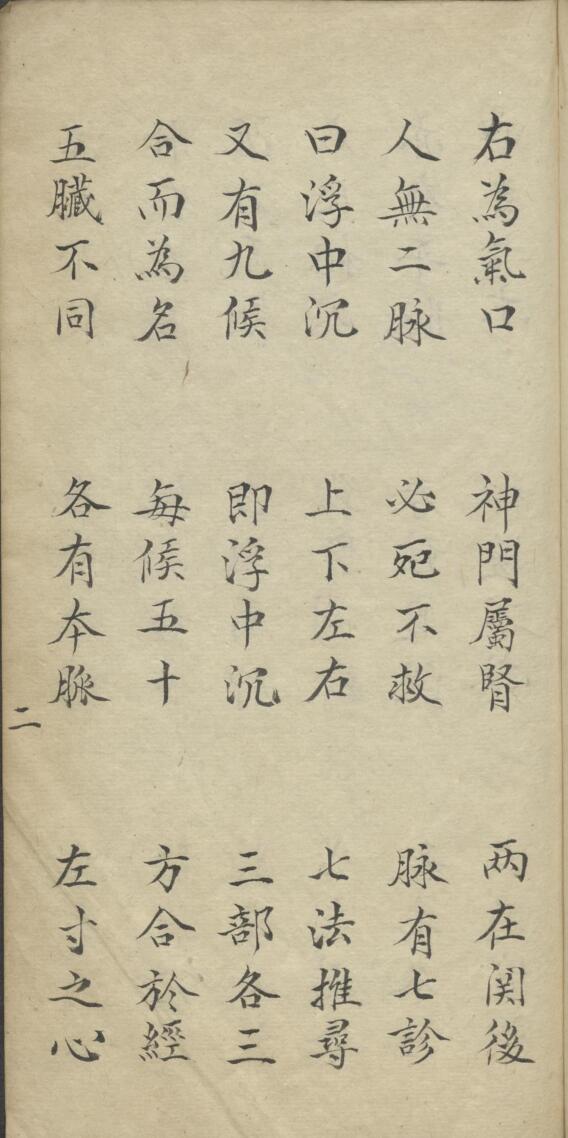 右為氣口　神門屬腎　两在関後
人無二脉　必死不救　脉有七診
曰浮中沉　上下左右　七法推尋
又有九候　即浮中沉　三部各三
合而為名　每候五十　方合於經
五臓不同　各有本脈　左寸之心
二